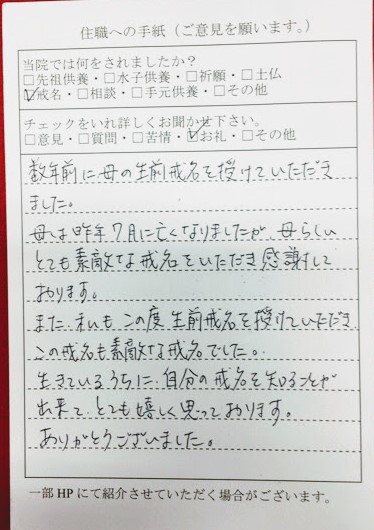 住職への手紙（ご意見を願います。）
当院では何をされましたか？
□先祖供養・□水子供養・□祈願・□土仏
☑戒名・□相談・□手元供養・□その他
チェックをいれ詳しくお聞かせ下さい。
□意見・□質問・□苦情・☑お礼・□その他
数年前に母の生前戒名を授けていただき
ました。
母は昨年7月に亡くなりましたが、母らしい
とても素敵な戒名をいただき感謝して
おります。
また、私もこの度生前戒名を授けていただき
この戒名も素敵な戒名でした。
生きているうちに、自分の戒名を知ることが
出来て、とても嬉しく思っております。
ありがとうございました。
一部HPにて紹介させていただく場合がございます。